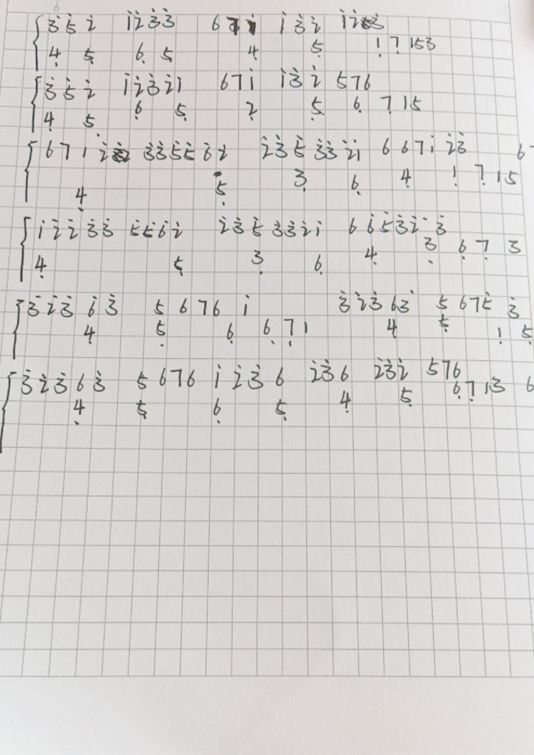 3̇ 5̇ 2̇ 1̇2̇3̇3̇ 6 7 1̇ 1̇ 3̇ 2̇ 1̇2̇3̇
4̣ 5̣ 6̣ 5̣ 4̣ 5̣ 1̣ 7̣ 153
3̇ 5̇ 2̇ 1̇2̇3̇2̇1̇ 671̇ 1̇3̇2̇ 576
4̣ 5̣ 6̣ 5̣ 2̣ 5̣ 6̣ 7̣ 15
6 7 1̇ 2̇ 3̇3̇5̇5̇3̇2̇ 2̇3̇5̇ 3̇3̇2̇1̇ 6 671̇ 2̇3̇ 6
4̣ 5̣ 3̣ 6̣ 4̣ 1̣ 7̣ 15
1̇2̇2̇3̇3̇ 5562̇ 2̇3̇5̇ 3̇3̇2̇1̇ 6 653̇2̇ 3̇
4̣ 5̣ 3̣ 6̣ 4̣ 3̣ 6̣ 7̣ 3
3̇2̇3̇ 6̇3̇ 5 676 1̇ 3̇2̇3̇ 6̇3̇ 5̇ 675̇ 3̇
4̣ 5̣ 6̣ 6̣ 7̣ 1 4̣ 5̣ 1̣ 5̣
3̇2̇3̇ 6̇3̇ 5 676 1̇ 2̇3̇ 6 2̇3̇6 2̇3̇2̇ 576
4̣ 5̣ 6̣ 5̣ 4̣ 5̣ 6̣ 7̣ 13 6